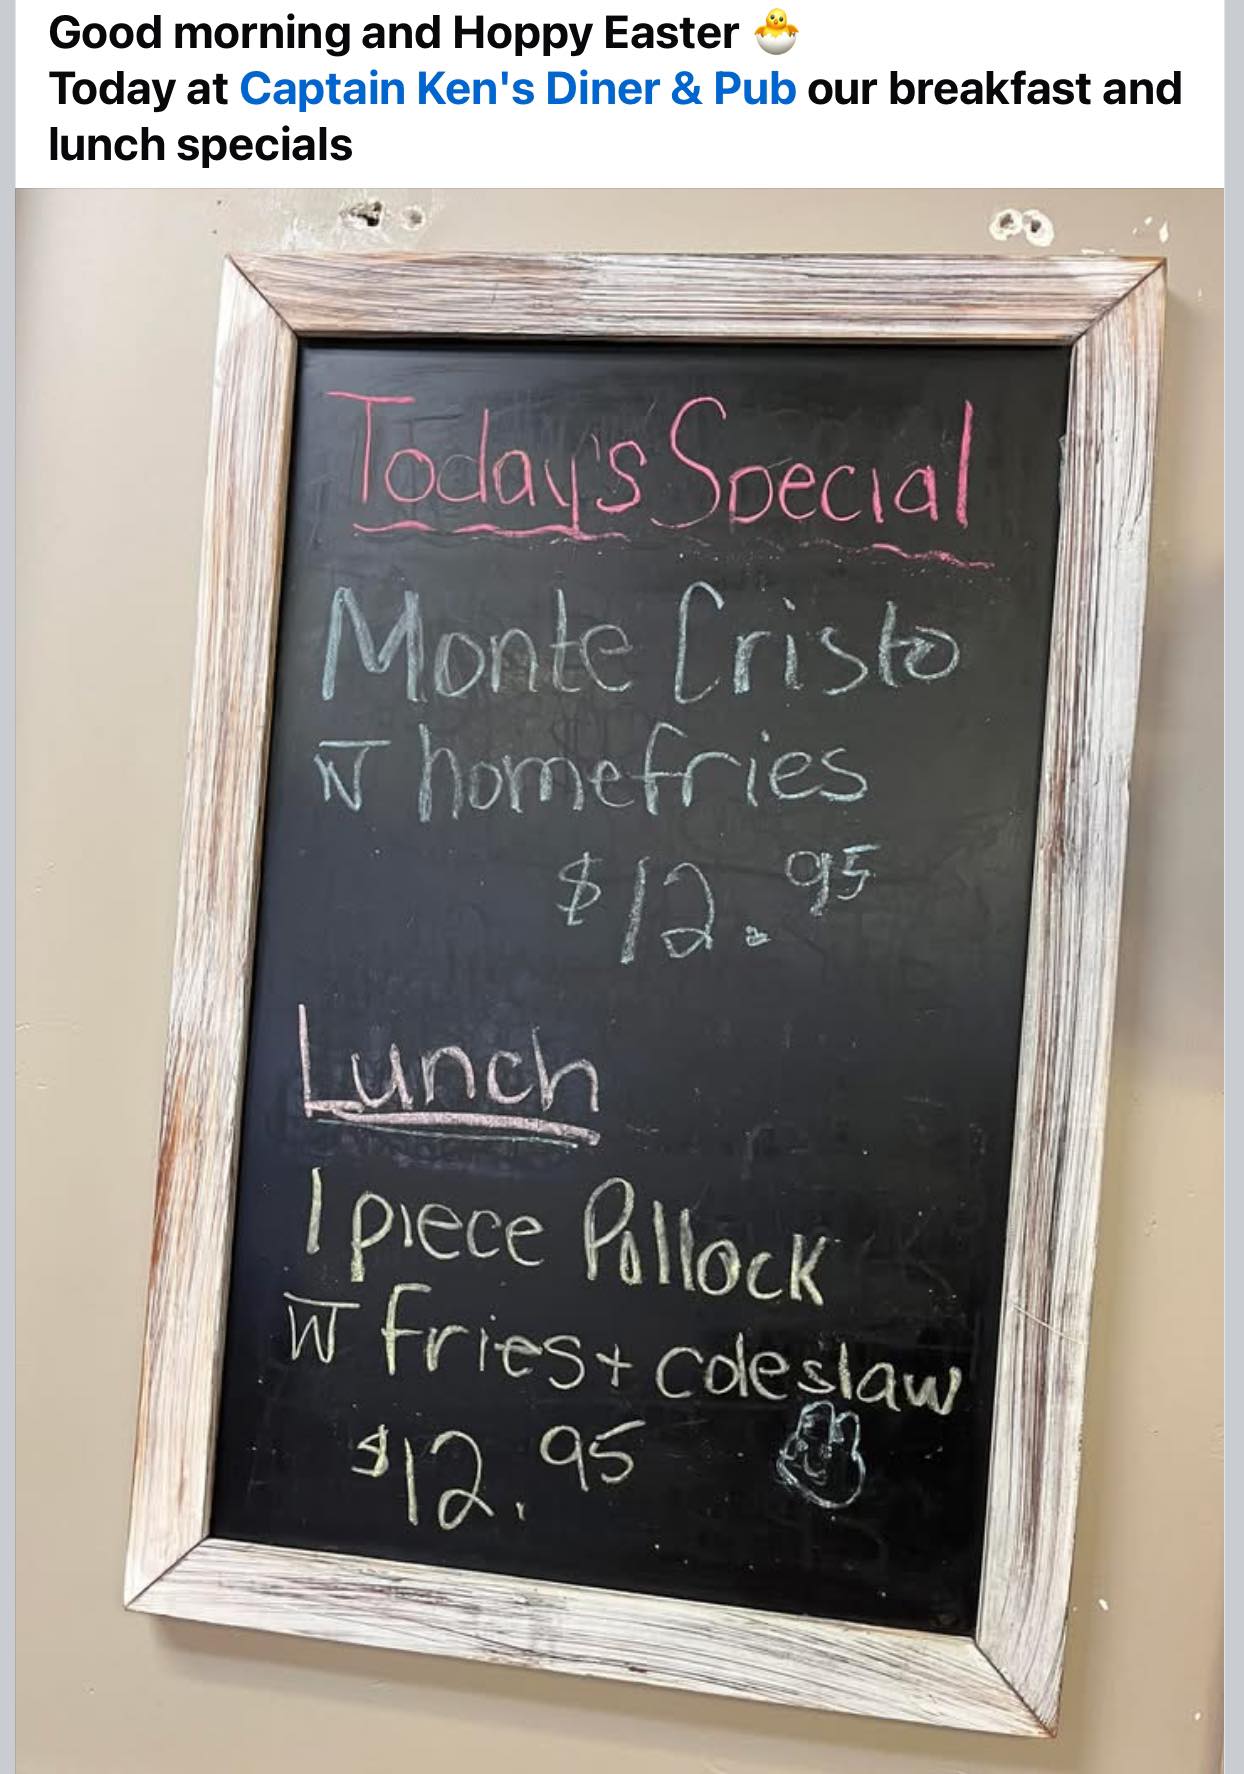 Good morning and Hoppy Easter 🐣
Today at Captain Ken's Diner & Pub our breakfast and
lunch specials
Today's Special
Monte Cristo
w homefries
$12.95
Lunch
1 piece Pollock
w fries + coleslaw
$12.95